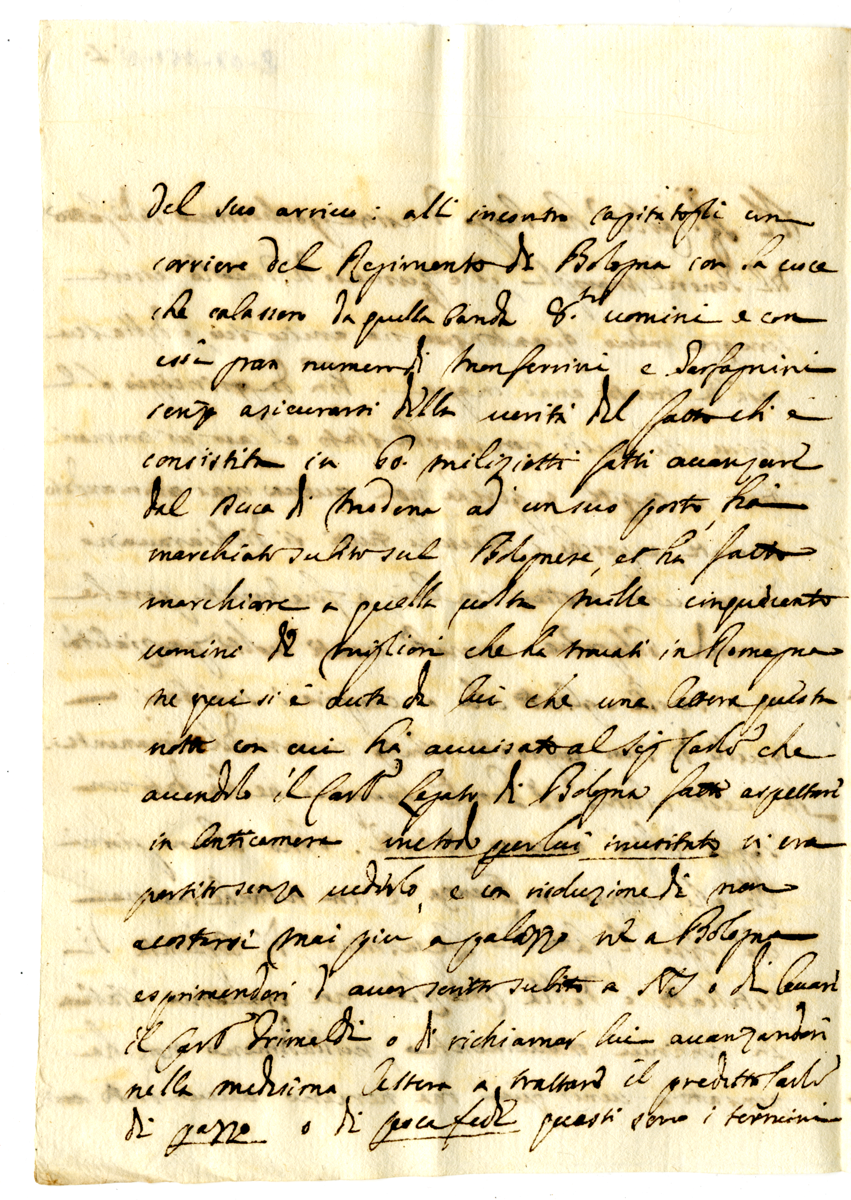 del suo arrivo: all incontro capitatogli un
corriere del Regimento di Bologna con la voce
che calassero da quella banda 8.m uomini e con
essi gran numero di Monferrini e Garfagnini
senza asicurarsi della verità del fatto ch è
consistito in 60. miliziotti fatti avanzare
dal Duca di Modena ad un suo posto, hà
marchiato subito sul Bolognese, et ha fatto
marchiare a quella volta mille cinquecento
uomini de migliori che hà trovati in Romagna
ne qui si è auta da lui che una lettera questa
notte con cui hà avvisato al Sig Cardl che
avendolo il Cardl Legato di Bologna fatto aspettare
in Anticamera metodo per lui inusitato si era
partito senza vederlo, e con risoluzione di non
acostarsi mai più a palazzo nè a Bologna
esprimendosi d aver scritto subito a NS o di levare
il Cardl Grimaldi o di richiamar lui avanzandosi
nella medesima lettera a trattare il predetto Cardl
di pazzo o di poca fede questi sono i termini